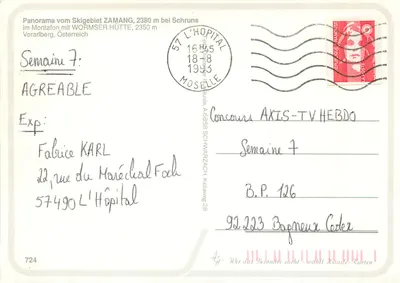 Panorama vom Skigebiet ZAMANG, 2380 m bei Schruns
im Montafon mit WORMSER HÜTTE, 2350 m
Vorarlberg, Österreich
57 L'HOPITAL
16H45
18-8
1993
MOSELLE
Semaine 7:
AGREABLE
Exp:
Fabrice KARL
22, rue du Maréchal Foch
57490 L'Hôpital
Concours AXIS-TV HEBDO
Semaine 7
B.P. 126
92.223 Bagneux Cedex
A-6858 SCHWARZACH
724